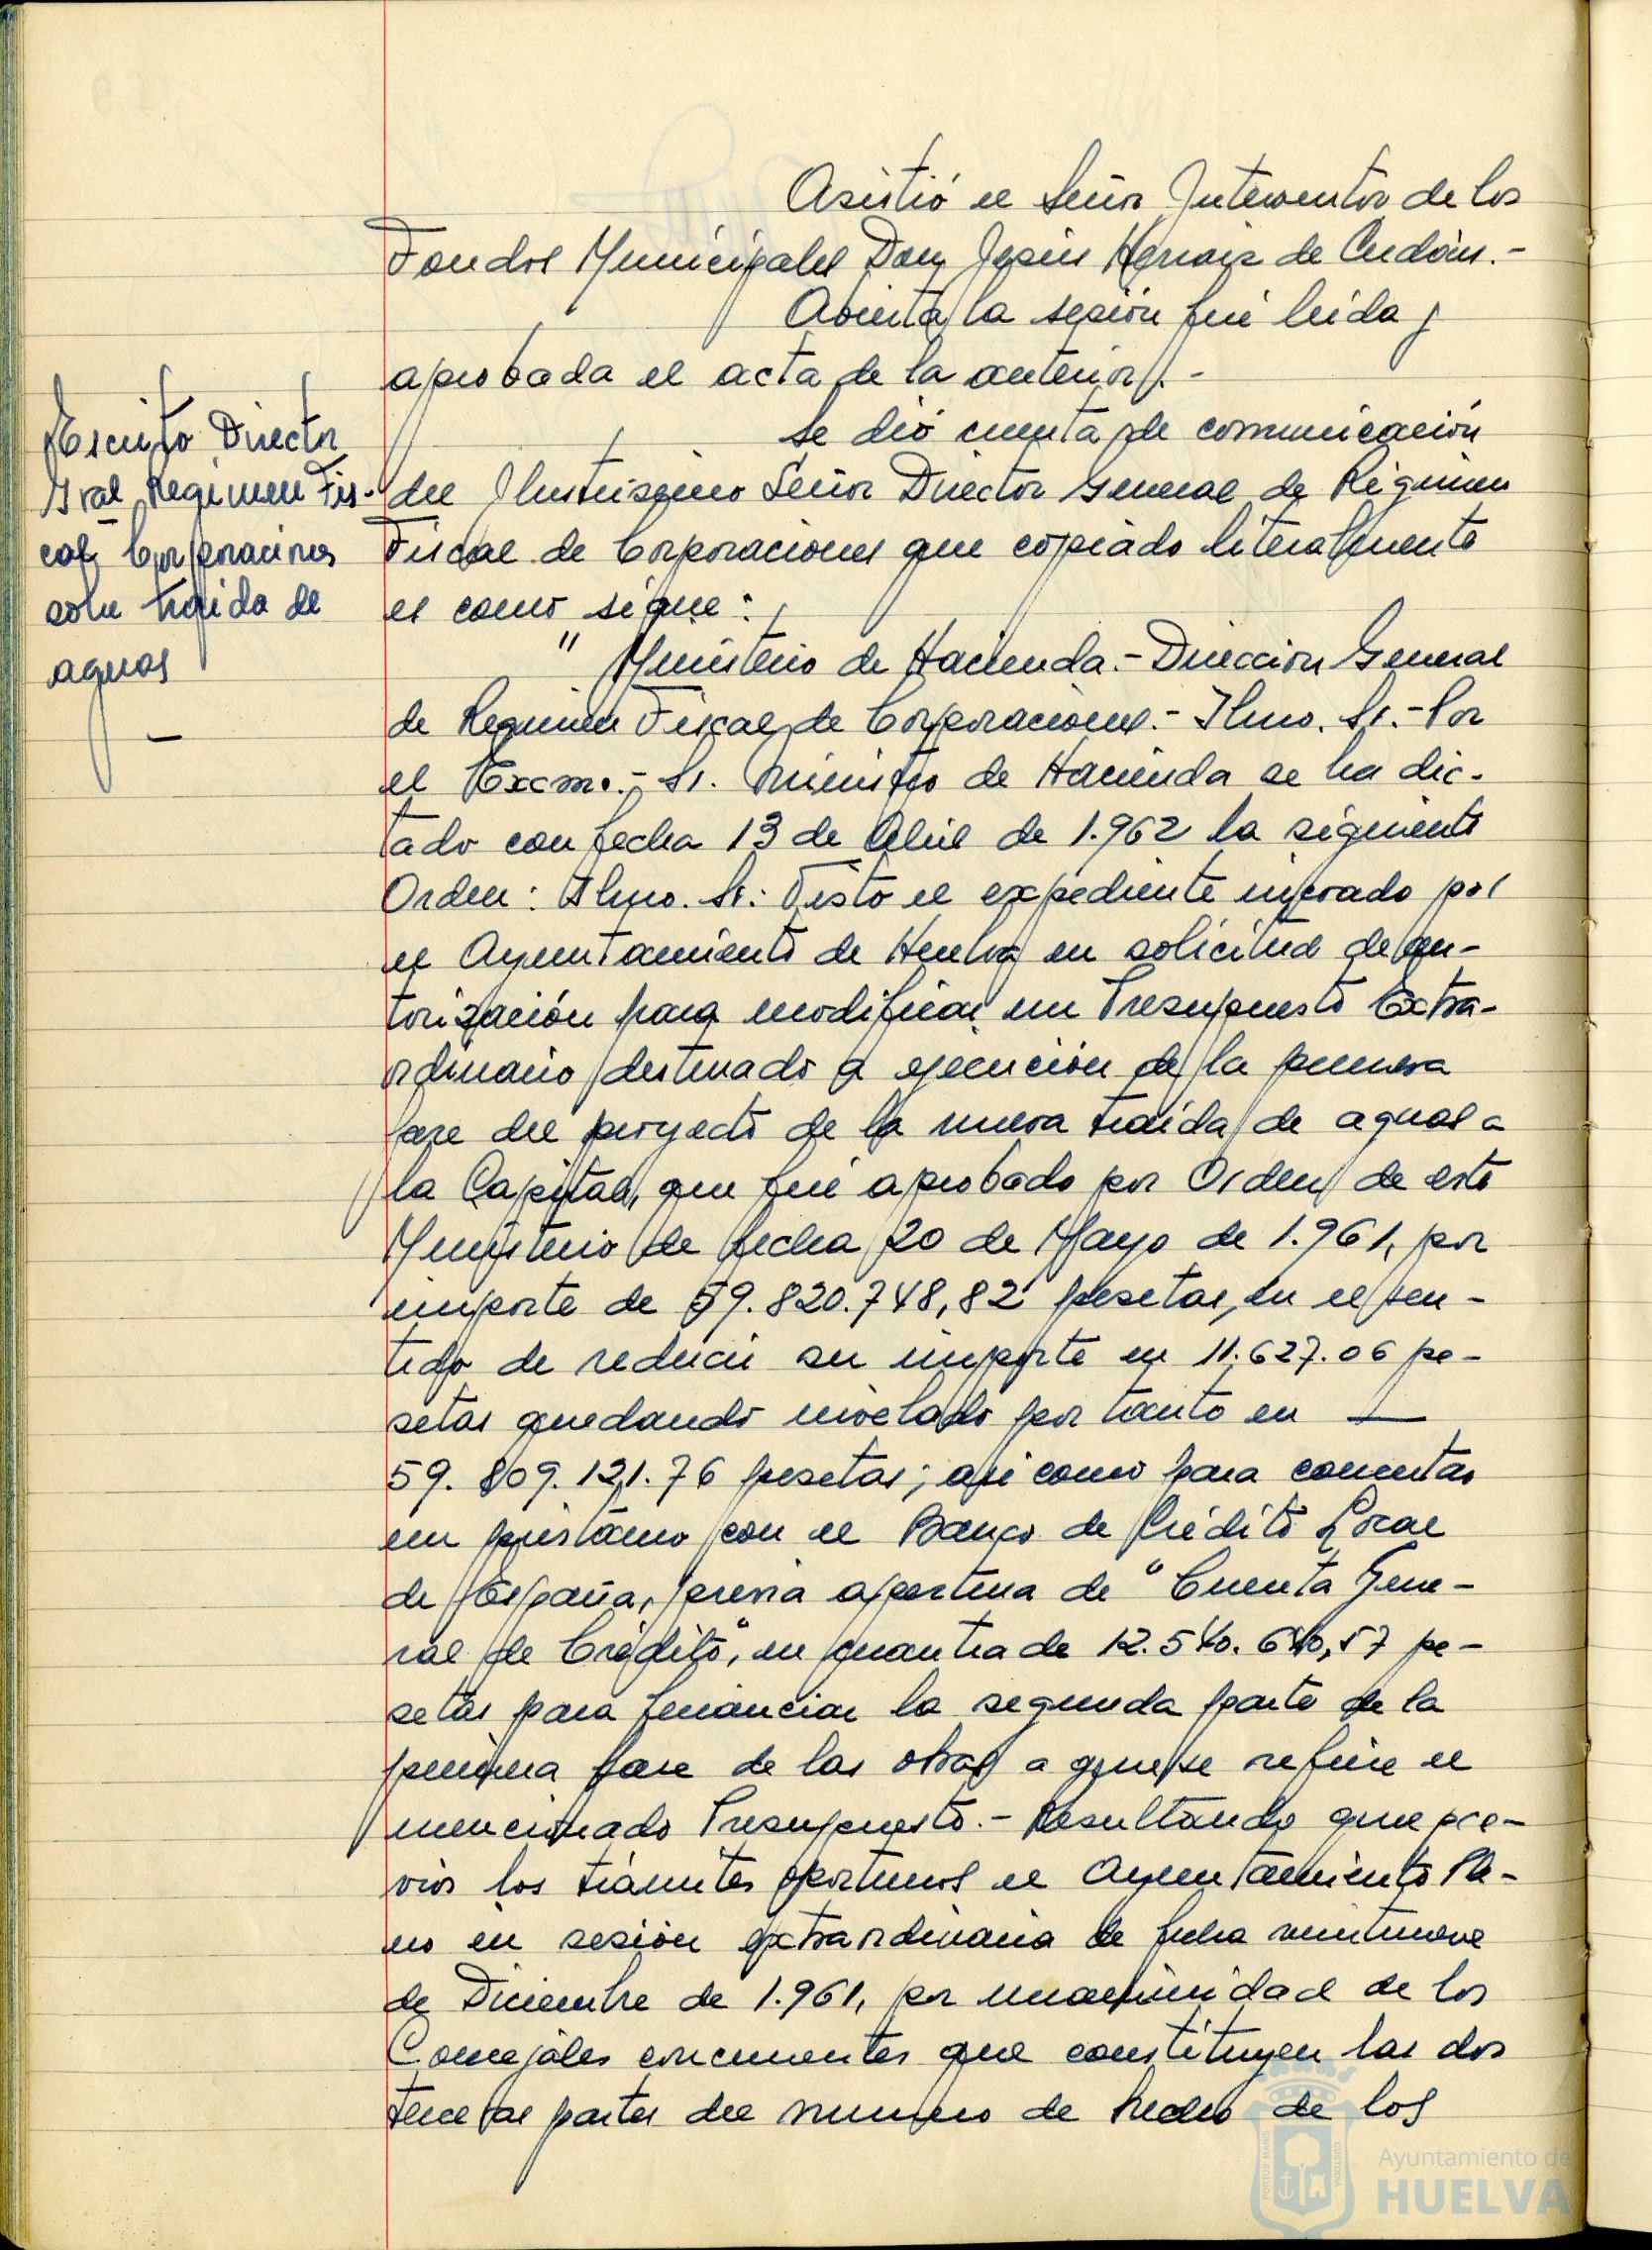 Asistió el Señor Interventor de los
Fondos Municipales Don Jesús de
Abierta la sesión fué leida y
aprobada el acta de la anterior.-
Escrito Director
Gral Regimen Fis-
cal Corporaciones
sobre traida de
aguas
Se dió cuenta de comunicación
del Ilustrísimo Señor Director General de Régimen
Fiscal de Corporaciones que copiado literalmente
es como sigue:
" Ministerio de Hacienda.- Direccion General
de Regimen Fiscal de Corporaciones.- Ilmo. Sr.- Por
el Excmo.- Sr. Ministro de Hacienda se ha dic-
tado con fecha 13 de Abril de 1.962 la siguiente
Orden: Ilmo. Sr: Visto el expediente incoado por
el Ayuntamiento de Huelva en solicitud de au-
torización para modificar un Presupuesto Extra-
ordinario destinado a ejecución de la primera
fase del proyecto de la nueva traida de aguas a
la Capital, que fué aprobado por Orden de este
Ministerio de fecha 20 de Mayo de 1.961, por
importe de 59.820.748,82 pesetas, en el sen-
tido de reducir su importe en 11.627.06 pe-
setas quedando nivelado por tanto en —
59.809.121.76 pesetas; asi como para concertar
un préstamo con el Banco de Crédito Local
de España, previa apertura de "Cuenta Gene-
ral de Crédito", en cuantia de 12.540.640,57 pe-
setas para financiar la segunda parte de la
primera fase de las obras a que se refiere el
mencionado Presupuesto.- Resultando que pre-
vios los trámites oportunos el Ayuntamiento Ple-
no en sesión extraordinaria de fecha veintinueve
de Diciembre de 1.961, por unanimidad de los
Concejales concurrentes que constituyen las dos
terceras partes del numero de hecho de los
Ayuntamiento de
HUELVA